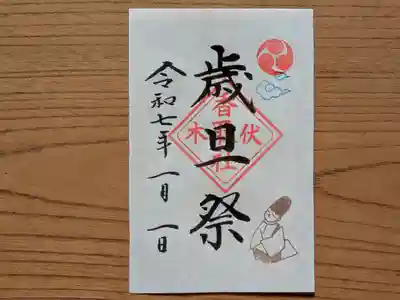 歳旦祭
令和七年 一月 一日
伏木
香
社